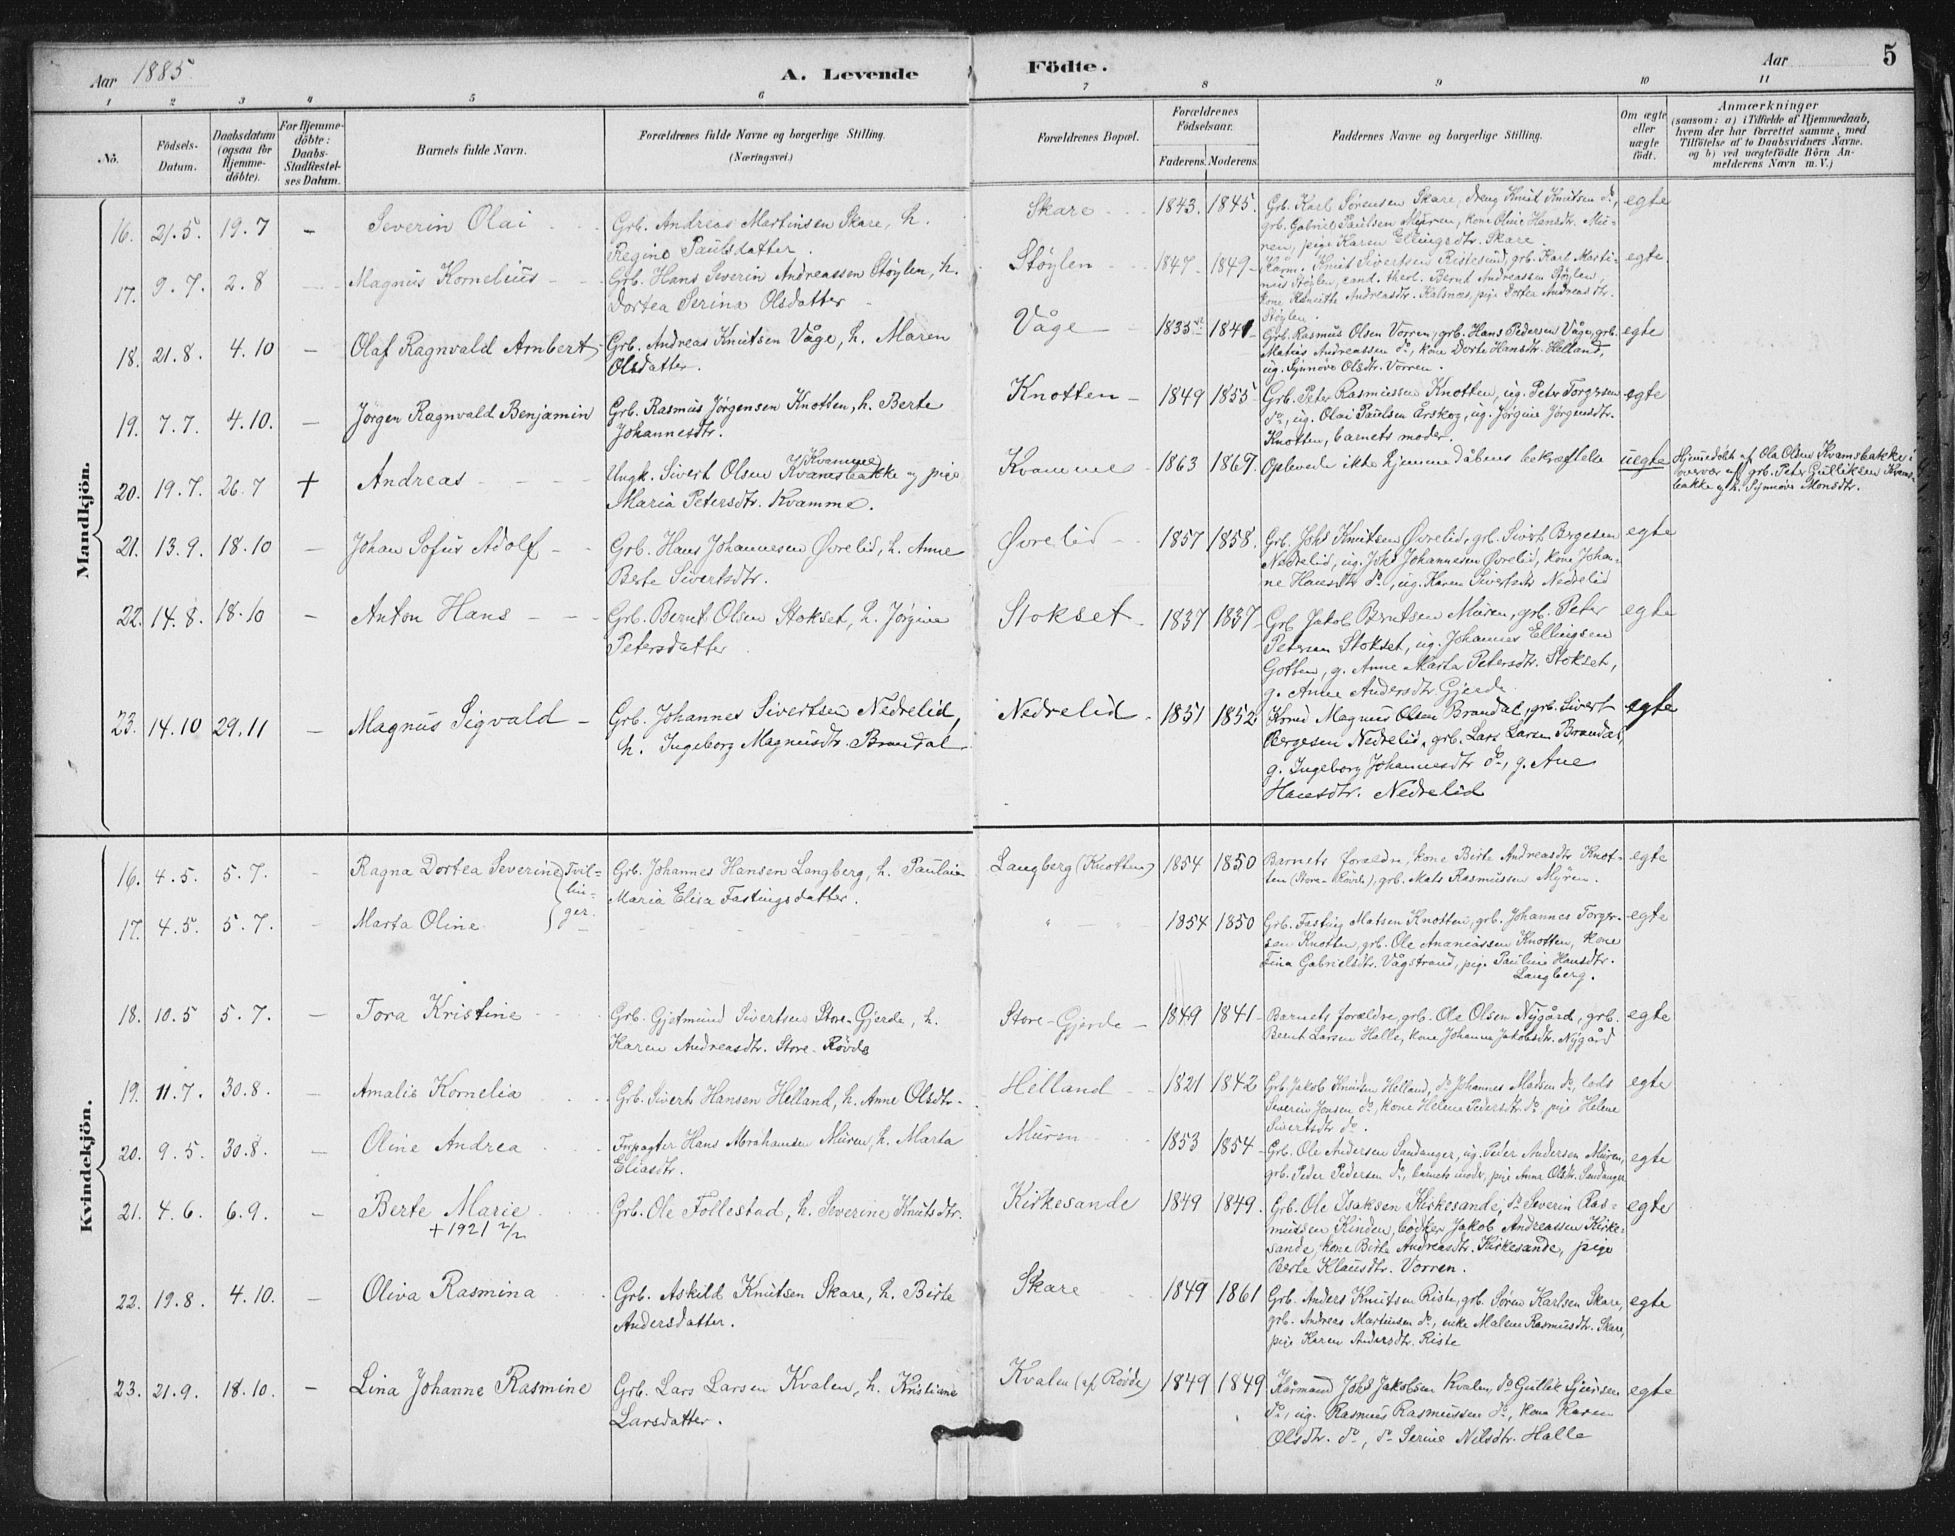 Aar 1885
A. Levende
Födte.
Aar
5
1 2 3 4 5 6 7 8 9 10 11
No.
Födsels-
Datum.
Daabsdatum
(ogsaa for
Hjemme-
döbte).
For Hjemme-
döbte:
Daabs-
Stadfæstel-
ses Datum.
Barnets fulde Navn.
Forældrenes fulde Navne og borgerlige Stilling.
(Næringsvei.)
Forældrenes Bopæl.
Forældrenes
Födselsaar.
Faderens. Moderens.
Faddernes Navne og borgerlige Stilling.
Om ægte
eller
uægte
født.
Anmærkninger
(saasom: a) i Tilfælde af Hjemmedaab,
hvem der har forrettet samme, med
Tilföielse af to Daabsvidners Navne,
og b) ved uægtefödte Börn An-
melderens Navn m. V.)
Mandkjön.
16. 21.5. 19.7 – Severin Olai
Grb. Andreas Martinsen Skare, h.
Regine Paulsdatter.
Skare 1843. 1845.
Grb. Karl Sørensen Skare, dreng Knut Knutsen do,
grb. Gabriel Paulsen Muren, kone Oline Hansdtr. Mu-
ren, pige Karen Ellingsdtr. Skare.
egte
17. 9.7. 2.8 Magnus Kornelius
Grb. Hans Severin Andreassen Støylen, h.
Dortea Serina Olsdatter
Støylen 1847. 1849
Kårm. Knut Sivertsen Ristesund, grb. Karl Marti-
nus Støylen, cand. theol. Bernt Andreassen Støylen,
kone Andreasdtr. Kalsnæs, pige Dorte Andreasdtr.
Støylen.
egte
18. 21.8. 4.10 – Olaf Ragnvald Arnbert
Grb. Andreas Knutsen Våge, h. Maren
Olsdatter.
Våge 1835 1841
Grb. Rasmus Olsen Vorren, grb. Hans Pedersen Våge, grb.
Matias Andreassen do, kone Dorte Hansdtr. Helland,
ug. Synnøve Olsdtr. Vorren.
egte
19. 7.7. 4.10. – Jørgen Ragnvald Benjamin
Grb. Rasmus Jørgensen Knotten, h. Berte
Johannesdtr.
Knotten 1849 1855
Grb. Peter Rasmussen Knotten, ug. Peter Torgersen
do, ug. Olai Paulsen Årskog, ug. Jørgine Jørgensdtr.
Knotten, barnets moder.
egte
20. 19.7. 26.7 + Andreas
Kvamme
Ungk. Sivert Olsen Kvamsbakke og pige
Maria Petersdtr. Kvamme.
Kvamme 1863 1869.
Oplevede ikke hjemmedåbens bekræftelse
uegte
Hjemmedøbt af Ola Olsen Kvamsbakke i
overvær af grb. Peter Gulliksen Kvams-
bakke og h. Synnøve Monsdtr.
21. 13.9. 18.10 – Johan Sofus Adolf
Grb. Hans Johannesen Øvrelid, h. Anne
Berte Sivertsdtr.
Øvrelid 1857 1858.
Grb. Johs Knutsen Øvrelid, grb. Sivert Bergesen
Nedrelid, ug. Johs Johannesen Øvrelid, kone Johan-
ne Hansdtr do, ug. Karen Sivertsdtr Nedrelid
egte
22. 14.8. 18.10 – Anton Hans
Grb. Bernt Olsen Stokset, h. Jørgine
Petersdatter
Stokset 1837 1837
Grb Jakob Berntsen Muren, grb. Peter
Petersen Stokset, ug. Johannes Ellingsen
Gotten, g. Anne Marta Petersdtr. Stokset,
g. Anne Andersdtr Gjerde.
egte
23. 14.10 29.11 – Magnus Sigvald
Grb. Johannes Sivertsen Nedrelid,
h. Ingeborg Magnusdtr. Brandal
Nedrelid 1851 1852
Magnus Olsen Brandal, grb. Sivert
Bergesen Nedrelid, grb. Lars Larsen Brandal,
g. Ingeborg Johannesdtr do, g. Ane
Hansdtr. Nedrelid
egte
Kvindekjön.
16. 4.5. 5.7. – Ragna Dortea Severine
Tvil-
lin-
ger.
Grb. Johannes Hansen Langberg, h. Paulaine
Maria Elisa Fastingsdatter.
Langberg (Knotten) 1854 1850
Barnets forældre, kone Birte Andreasdtr Knot-
ten (Store-Røvde), grb. Mats Rasmussen Myren.
egte
17. 4.5. 5.7. – Marta Oline
" — " 1854 1850
Grb. Fasting Matsen Knotten, grb. Johannes Torger-
sen Knotten, grb. Ole Ananiassen Knotten, kone
Fina Gabrielsdtr. Vågstrand, pige Pauline Hansdtr.
Langberg.
egte
18. 10.5 5.7. – Tora Kristine
Grb. Gjetmund Sivertsen Store-Gjerde, h.
Karen Andreasdtr. Store-Røvde
Store-Gjerde 1849 1841
Barnets forældre, grb. Ole Olsen Nygård, grb.
Bernt Larsen Halle, kone Johanne Jakobsdtr. Nygård
egte
19. 11.7. 30.8. – Amalie Kornelia
Grb. Sivert Hansen Helland, h. Anne Olsdtr.
Helland 1821 1842
Grb Jakob Knudsen Helland, do Johannes Madsen do, lods
Severin Jonsen do, kone Helene Pedersdtr. do, pige Helene
Sivertsdtr do.
egte
20. 9.5. 30.8. – Oline Andrea
Forpagter Hans Abrahamsen Muren, h. Marta
Eliasdtr.
Muren 1853 1854
Grb. Ole Andersen Sandanger, ug. Peter Andersen Muren,
grb. Peder Pedersen do, barnets moder, pige Anne Olsdtr. Sandanger
egte
21. 4.6. 6.9. – Berte Marie
+ 1921 2/2
Grb. Ole Follestad, h. Severine Knutsdtr.
Kirkesande 1849 1849.
Grb. Ole Isaksen Kirkesande, do Severin Ras-
mussen Kinden, bødker Jakob Andreassen Kirke-
sande, kone Birte Andreasdtr. Kirkesande, pige
Berte Klausdtr. Vorren.
egte
22. 19.8. 4.10. – Oliva Rasmina
Grb. Askild Knutsen Skare, h. Birte
Andersdatter.
Skare 1849 1861
Grb. Anders Knutsen Riste, grb. Søren Karlsen Skare,
grb. Andreas Martinsen do, enke Malene Rasmusdtr. Skare,
pige Karen Andersdtr. Riste
egte
23. 21.9. 18.10. – Lina Johanne Rasmine
Grb. Lars Larsen Kvalen, h. Kristiane
Larsdatter.
Kvalen (af Røvde) 1849 1849
Kårmand Johs Jakobsen Kvalen, do Gullik Sjursen
do, ug. Rasmus Rasmussen do, kone Karen
Olsdtr. do, do Serine Nilsdtr. Halle
egte